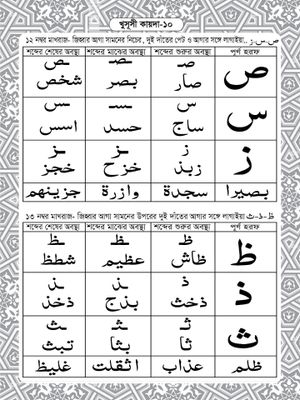 খুসূসী কায়দা-১০
১২ নম্বর মাখরাজ- জিহ্বার আগা সামনের নিচের, দুই দাঁতের পেট ও আগার সঙ্গে লাগাইয়া ; ص.س.ز
শব্দের শেষের অবস্থা শব্দের মাঝের অবস্থা শব্দের শুরুর অবস্থা পূর্ণ হরফ
ـص ـصـ صـ ص
شخص بصر صار
ـس ـسـ سـ س
اسس حسد ساج
ـز ـز ز ز
خجز خزح زبذ
جزينهم وازرة سجدة بصيرا
১৩ নম্বর মাখরাজ- জিহ্বার আগা সামনের উপরের দুই দাঁতের আগার সঙ্গে লাগাইয়া ظ-ذ-ث
শব্দের শেষের অবস্থা শব্দের মাঝের অবস্থা শব্দের শুরুর অবস্থা পূর্ণ হরফ
ـظ ـظـ ظـ ظ
شطظ عظيم ظاش
ـذ ـذ ذ ذ
ذخذ بذج ذخث
ـث ـثـ ثـ ث
تبث بثا ثا
غليظ اثقلت عذاب ظلم